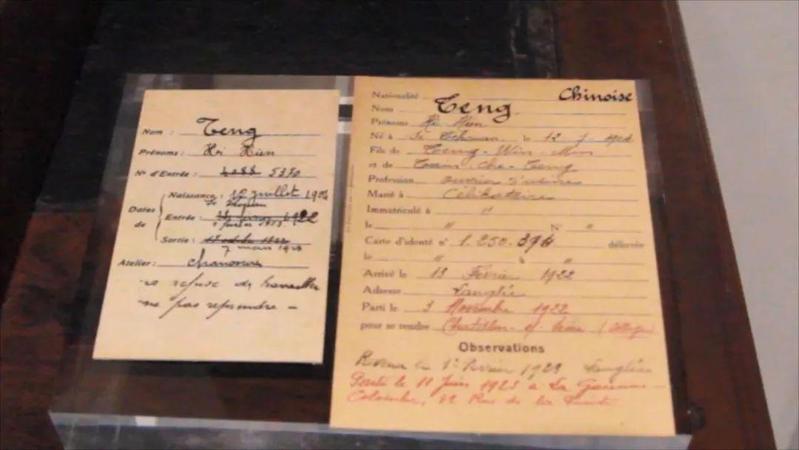 Nom : Teng
Prénoms : Hi Hien
N° d'Entrée : 4088 5370
Naissance : 12 juillet 1904
Dates de
Entrée :
Sortie :
7 mars 1923
Atelier : Chaussures
refuse de travailler
ne pas reprendre –
Nationalité Chinoise
Nom Teng
Prénoms Hi Hien
Né à Se Tchuan le 12 7 1904
Fils de Teng - Wen - Min
et de
Profession ouvrier d'usine
Marié à Célibataire
Immatriculé à "
le " N° "
Carte d'identité n° 1.250.394 délivrée
le " à "
Arrivé le 13 Février 1922
Adresse Langlée
Parti le 3 Novembre 1922
pour se rendre Chatillon - s/ Seine (Collège)
Observations
Revenu le 1er Février 1923 Langlée
Parti le 11 Juin 1923 à La Garenne -
Colombes, 39 Rue de la Pointe